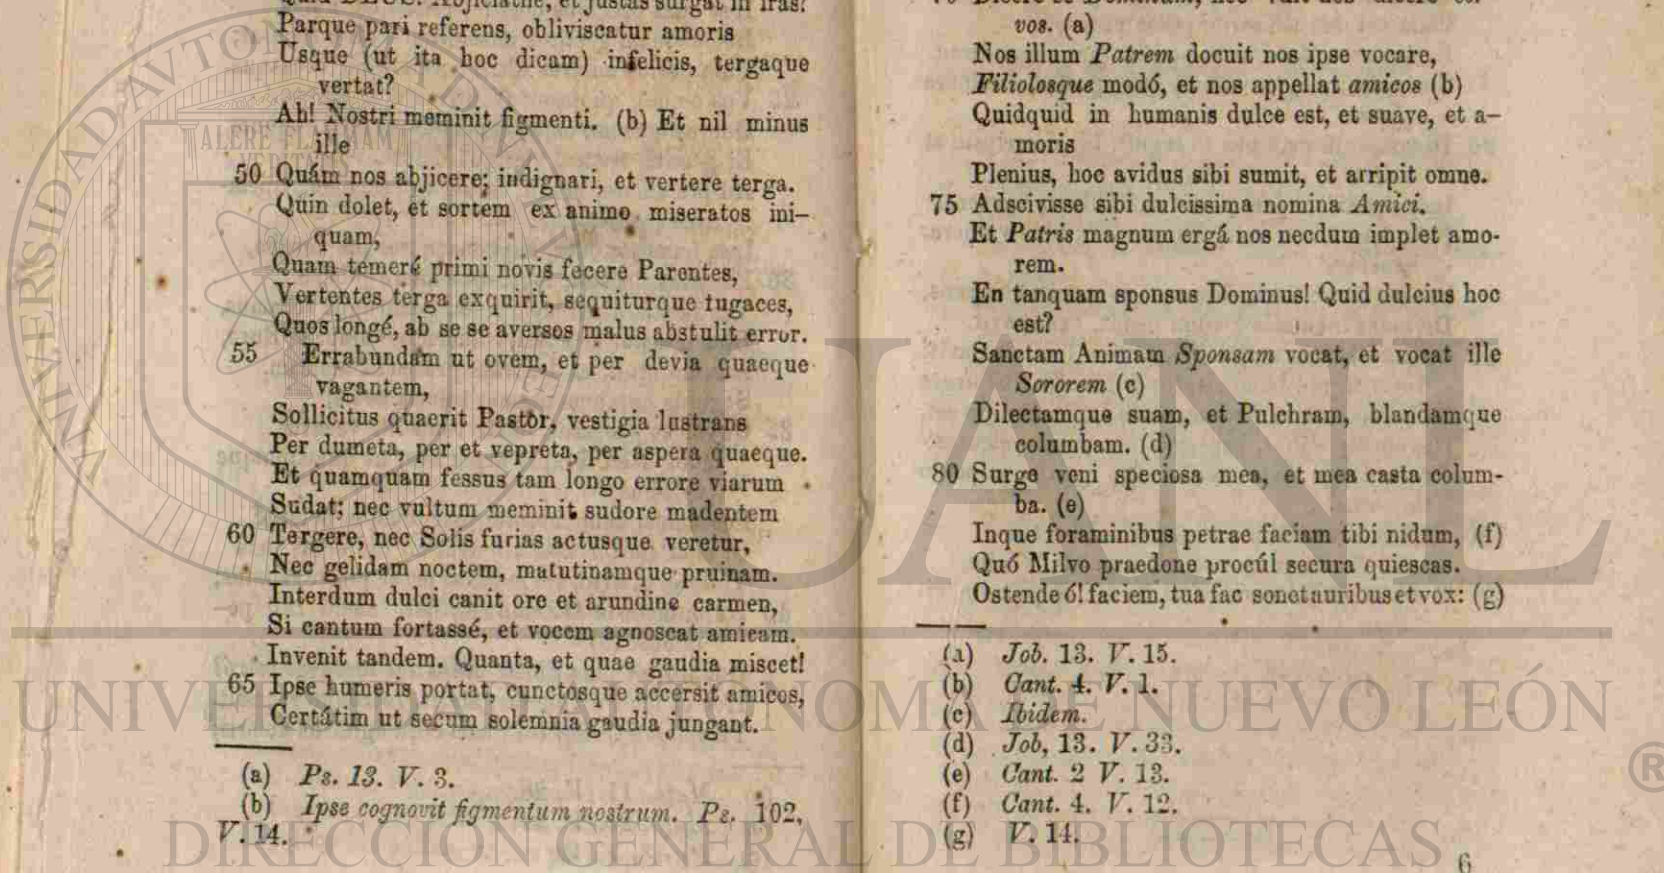 Parque pari referens, obliviscatur amoris
Usque (ut ita hoc dicam) infelicis, tergaque
vertat?
Ah! Nostri meminit figmenti. (b) Et nil minus
ille
50 Quám nos abjicere; indignari, et vertere terga.
Quin dolet, et sortem ex animo miseratos ini-
quam,
Quam temeré primi novis fecere Parentes,
Vertentes terga exquirit, sequiturque fugaces,
Quos longé, ab se se aversos malus abstulit error.
55 Errabundam ut ovem, et per devia quaeque
vagantem,
Sollicitus quaerit Pastor, vestigia lustrans
Per dumeta, per et vepreta, per aspera quaeque.
Et quamquam fessus tam longo errore viarum
Sudat; nec vultum meminit sudore madentem
60 Tergere, nec Solis furias actusque veretur,
Nec gelidam noctem, matutinamque pruinam.
Interdum dulci canit ore et arundine carmen,
Si cantum fortassé, et vocem agnoscat amicam.
Invenit tandem. Quanta, et quae gaudia miscet!
65 Ipse humeris portat, cunctosque accersit amicos,
Certátim ut secum solemnia gaudia jungant.
(a) Ps. 13. V. 3.
(b) Ipse cognovit figmentum nostrum. Ps. 102,
V. 14.
vos. (a)
Nos illum Patrem docuit nos ipse vocare,
Filiolosque modó, et nos appellat amicos (b)
Quidquid in humanis dulce est, et suave, et a-
moris
Plenius, hoc avidus sibi sumit, et arripit omne.
75 Adscivisse sibi dulcissima nomina Amici.
Et Patris magnum ergá nos necdum implet amo-
rem.
En tanquam sponsus Dominus! Quid dulcius hoc
est?
Sanctam Animam Sponsam vocat, et vocat ille
Sororem (c)
Dilectamque suam, et Pulchram, blandamque
columbam. (d)
80 Surge veni speciosa mea, et mea casta colum-
ba. (e)
Inque foraminibus petrae faciam tibi nidum, (f)
Quó Milvo praedone procúl secura quiescas.
Ostende ó! faciem, tua fac sonet auribus et vox: (g)
(a) Job. 13. V. 15.
(b) Cant. 4. V. 1.
(c) Ibidem.
(d) Job, 13. V. 33.
(e) Cant. 2 V. 13.
(f) Cant. 4. V. 12.
(g) V. 14.
6
UANL
UNIVERSIDAD AUTÓNOMA DE NUEVO LEÓN
®
DIRECCIÓN GENERAL DE BIBLIOTECAS
ALERE FLAMMAM
VERITATIS